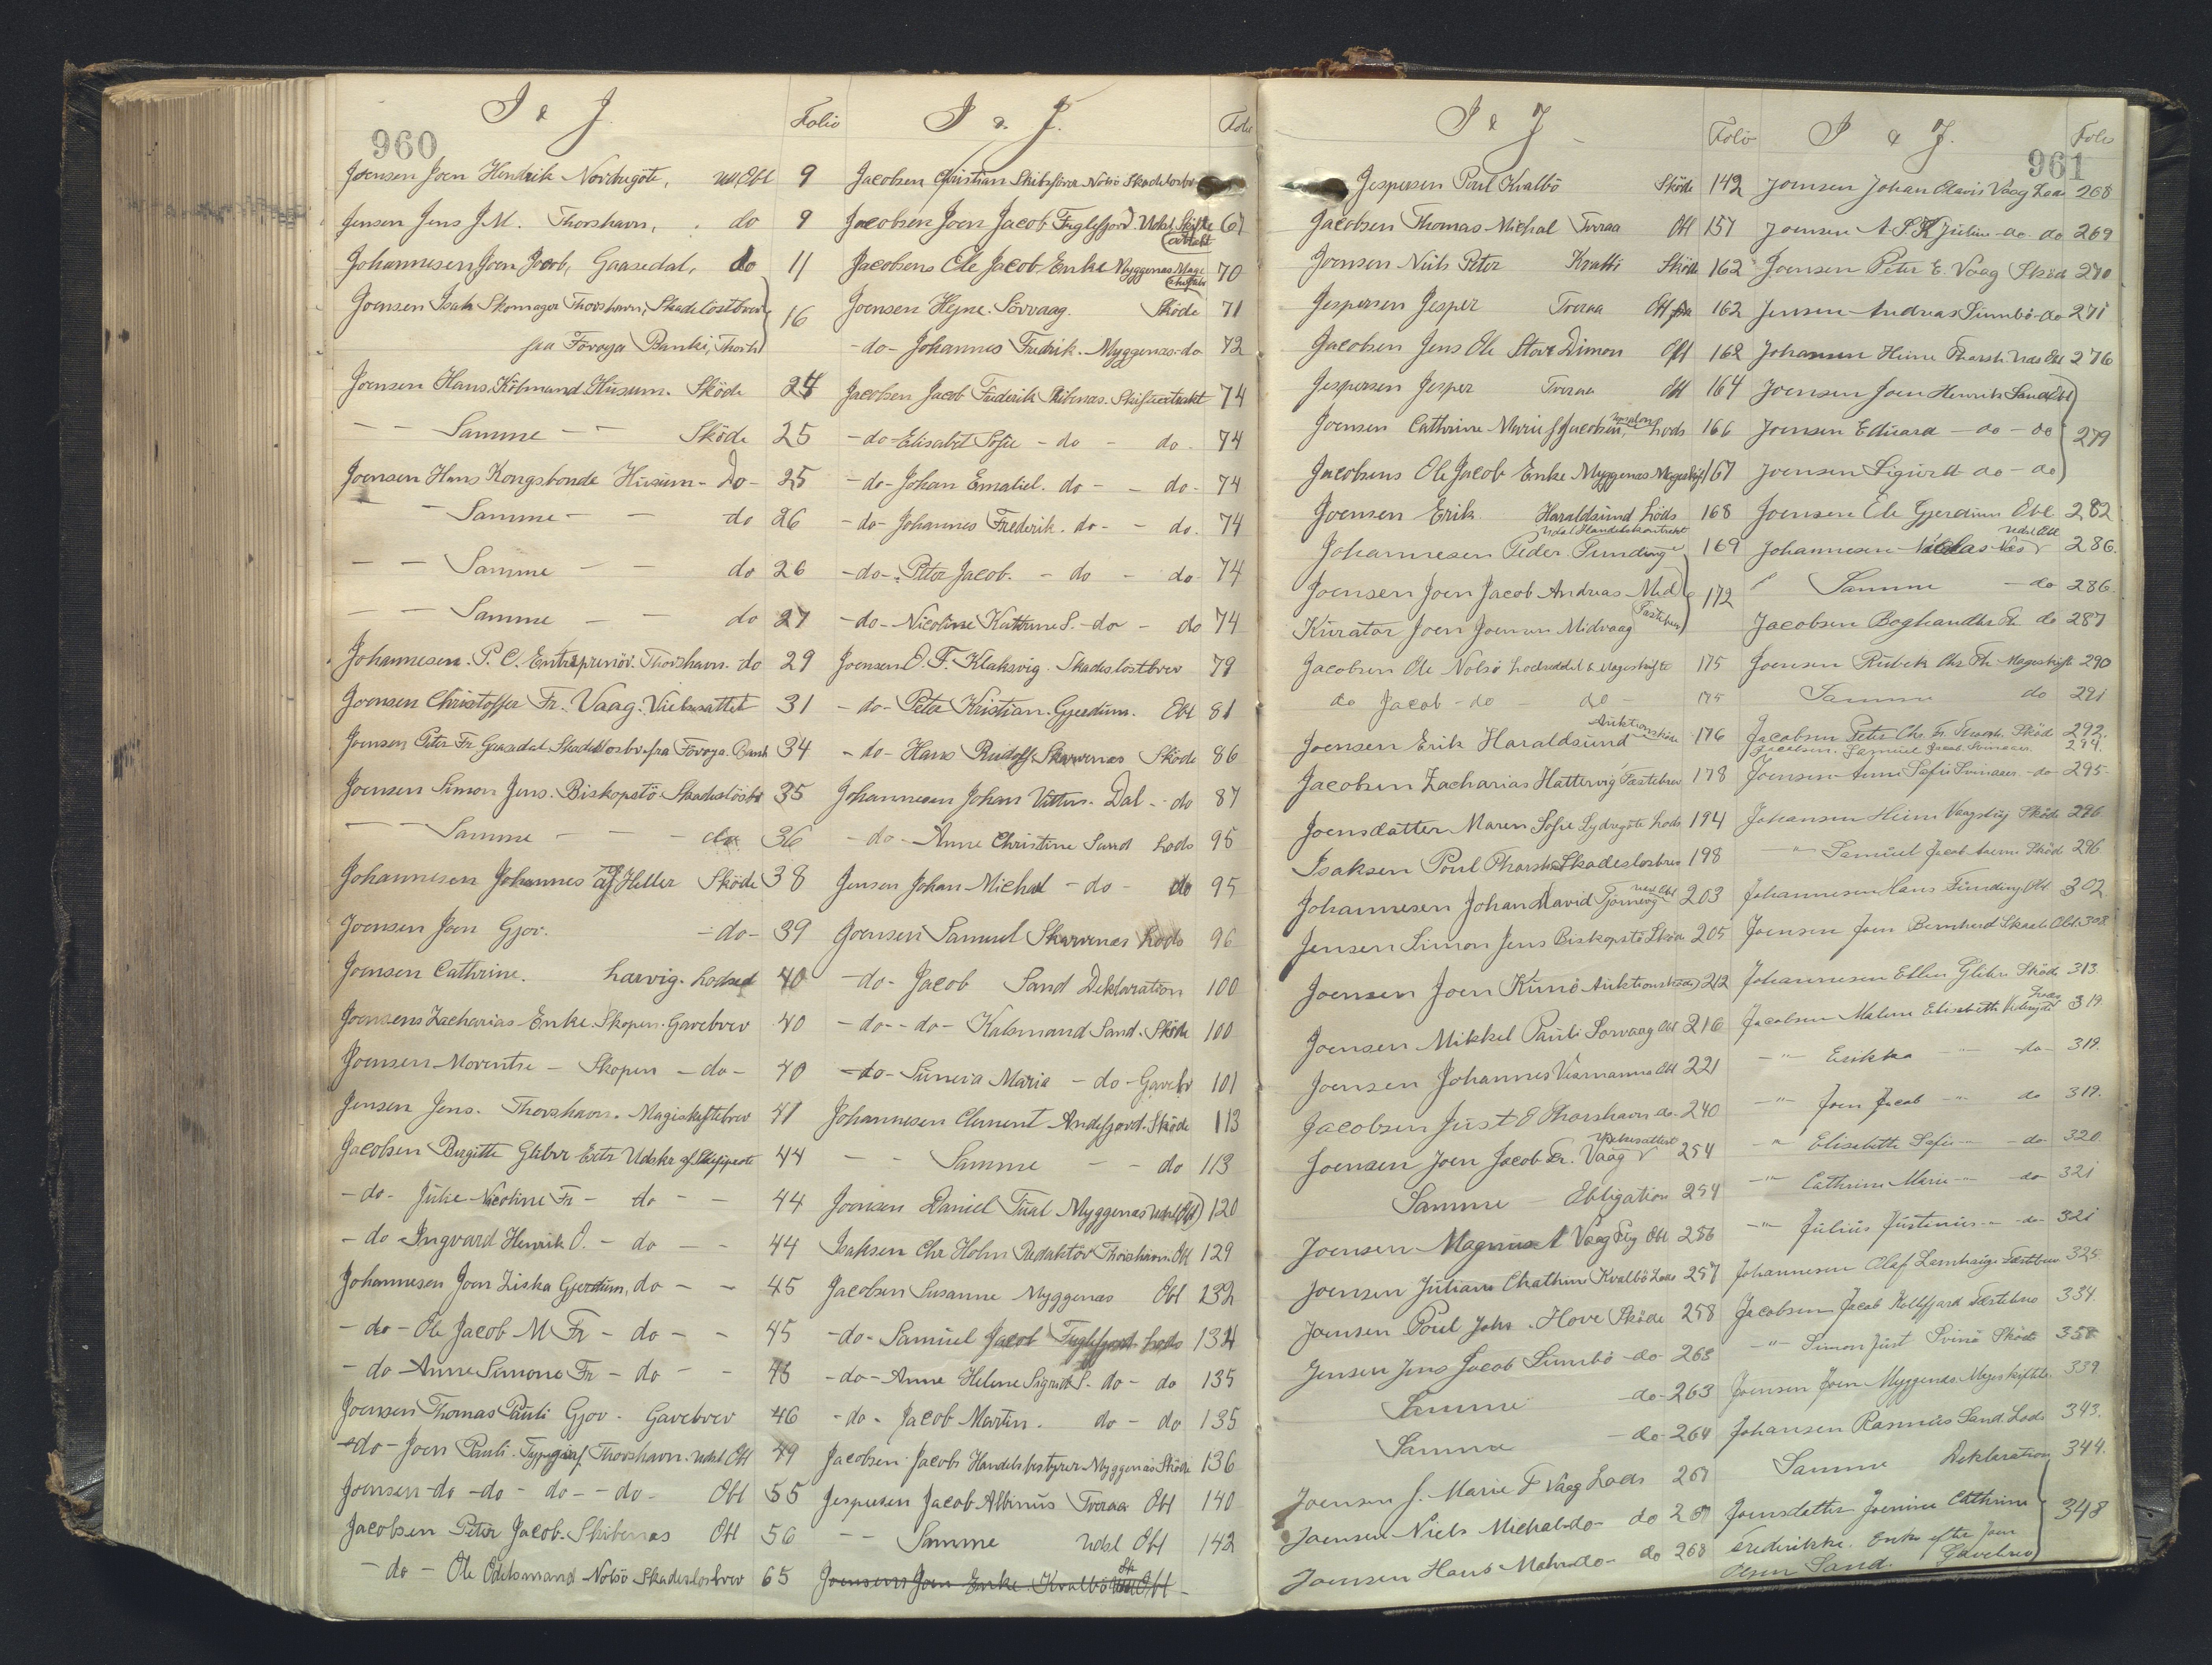 960
I & J.
Folio
Joensen Joen Hendrik Nordregöte, udl Obl 9
Jensen Jens J.M. Thorshavn, do 9
Johannesen Joen Jacob, Gaasedal, do 11
Joensen Isak Skomager Thorshavn, Skadeslöstbrev
fra Föroya Banki, Thorsh 16
Joensen Hans Köbmand Husum. Sköde 24
— — Samme — — Sköde 25
Joensen Hans Kongsbonde Husum - Do - 25
— Samme — — do 26
— — Samme — do 26
— — Samme — — do 27
Johannesen. P. C. Enterprenör. Thorshavn. do 29
Joensen Christoffer Fr. Vaag. Vielsesattest 31
Joensen Peter Fr. Gaasedal Skadeslosbr. fra Föroya Bank 34
Joensen Simon Jens. Biskopstö Skadeslösbr 35
— — Samme — — — do 36
Johannesen Johannes af Heller Sköde 38
Joensen Joen Gjov. - do - 39
Joensen Cathrine. Larvig. Lodsed 40
Joensens Zacharias Enke. Skopen. Gavebrev 40
Joensen Morentse — Skopen — do — 40
Jensen Jens. Thorshavn. Mageskiftebrev 41
Jacobsen Birgitte Glibre Extr Udskr af Skifteprot 44
- do - Julie Nicoline Fr - do - - 44
- do Ingvard Henrik O. - do — - 44
Johannesen Joen Ziska Gjerdum, do - - 45
- do - Ole Jacob M Fr - do - - 45
- do Anne Simone Fr - do - - 46
Joensen Thomas Pauli Gjov - Gavebrev 46
- do - Joen Pauli. Typograf, Thorshavn. udsl Obl 49
Joensen - do - do - do - - do - Obl 55
Jacobsen Peter Jacob. Skibenas Obl 56
- do - Ole Odelsmand Nolsö Skadeslosbrev 65
I & J.
Folio
Jacobsen Christian Skibsförer Nolsö Skadeslosbr
Jacobsen Joen Jacob Fuglefjord. Udsl. Skifte 67
Jacobsens Ole Jacob Enke Myggenas Mage 70
Joensen Hejne. Sörvaag. Sköde 71
- do - Johannes Fredrik. Myggenas - do 72
Jacobsen Jacob Frederik Skibenas. Skifteextrakt 74
- do - Elisabet Sofie - do - do - 74
- do - Johan Emaliel. do - - do - 74
- do - Johannes Frederik. do - - do. 74
- do - Peter Jacob. - do - do 74
- do - Nicoline Kathrine S. - do - do 74
Joensen O. F. Klaksvig. Skadeslöstbrev 79
- do - Peter Kristian. Gjerdum. Obl 81
- do - Hans Rudolf. Skarvenas Sköde 86
Johannesen Johan Dal - do 87
- do - Anne Christine Sand Lods 95
Jensen Johan Michal - do - do 95
Joensen Samuel Skarvenas Lods 96
- do - Jacob Sand Deklaration 100
- do - - do - Kalsmand Sand. Sköde 100
- do - Suneva Maria - do - Gavebr 101
Johannesen Clement Andefjord. Sköde 113
— — Samme — — do 113
Joensen Daniel Tual Myggenas Udsl Obl 120
Isaksen Chr Holm Redaktör Thorshavn. Obl 129
Jacobsen Susanne Myggenas Obl 132
- do - Samuel Jacob Fuglefjord. Lods 134
- do - Anne Helene Sigrid S. do - do 135
- do - Jacob Martin. do - do 135
Jacobsen Jacob Handelsbestyrer Myggenas Sköde 136
Jespersen Jacob Albinus Tveraa Obl 140
— — Samme udsl Obl 142
Joensens Joen Enke Kvalbö Obl -
I & J
Folio
Jespersen Poul Kvalbö Sköde 142
Jacobsen Thomas Michal Tveraa Obl 157
Joensen Niels Peter Kvalbö Sköde 162
Jespersen Jesper Tveraa Obl 162
Jacobsen Jens Ole Store Dimon Obl 162
Jespersen Jesper Tveraa Obl 164
Joensen Cathrine Marie f Jacobsen, Lods 166
Jacobsens Ole Jacob Enke Myggenas Mageskif 167
Joensen Erik Haraldsund Lods 168
Udsl Handelskontrakt
Johannesen Peder Funding 169
Joensen Joen Jacob Andreas Mid
Kurator Joen Joensen Midvaag Fastebrev 172
Jacobsen Ole Nolsö Lodseddel & Mageskifte 175
do Jacob - do - do - 175
Joensen Erik Haraldsund Auktionsskøde 176
Jacobsen Zacharias Hattervig Fastebrev 178
Joensdatter Maren Sofie Sydregöte Lods 194
Isaksen Poul Thorshavn Skadeslosbrev 198
Johannesen Johan David Tjörnevig udsl Obl 203
Jensen Simon Jens Biskopstö Sköde 205
Joensen Joen Kunö Auktionssköde 212
Joensen Mikkel Pauli Sorvaag Obl 216
Joensen Johannes Vesmanna Obl 221
Jacobsen Just E Thorshavn do - 240
Joensen Joen Jacob Fr. Vaag Vielsesattest 254
Samme — Obligation 254
Joensen Magnus A Vaag Obl 256
Joensen Juliane Chathrine Kvalbö Lods 257
Joensen Poul Johs. Hove Sköde 258
Jensen Jens Jacob Sumbö - do - 263
Samme - do - 263
Samme - do - 264
Joensen J. Marie F Vaag Lods 267
Joensen Niels Michal - do - do 267
Joensen Hans Mohr - do - do 268
961
I & J.
Folio
Joensen Johan Olavis Vaag Lods 268
Joensen A. S. K Juline - do - do 269
Joensen Peter E. Vaag Sköd 270
Jensen Andreas Sumbö - do 271
Johansen Heine Thorsh. udsl Obl 276
Joensen Joen Henrik Sand Obl
Joensen Eduard - do - do 279
Joensen Sigurd do - do
Joensen Ole Gjerdum Obl. 282
udsl Obl
Johannesen Niklas Næs 286.
Samme - do 286.
Jacobsen Boghandler Th. do 287
Joensen Rubek Chr. Th. Mageskifte 290
Samme do 291
Jacobsen Peter Chr. Fr. Sköd 292.
Jacobsen Samuel Jacob. Svinaaer. 294.
Joensen Anne Sofie Svinaaer - do - 295-
Johansen Heini Sköde 296
—"— Samuel Jacob Sköd 296
Johannesen Hans Funding Obl 302
Joensen Joen Bernhard Skaale Obl. 308
Johannesen Ellen Glibre Sköde 313
Jacobsen Malene Elisabeth Lods 319.
—"— Erikka — do - 319.
—"— Joen Jacob —"— do 319.
—"— Elisabeth Sofie —"— do 320
—"— Cathrine Marie —"— do 321
—"— Julius Justinus —"— do - 321
Johannesen Olaf Lamhauge Fæstebrev 325
Jacobsen Jacob Kollefjord Fæstebrev 334
—"— Simon Just Svinö Sköde 358
Joensen Joen Myggenæs Mageskiftebr. 339
Johansen Rasmus Sand. Lods 343.
Samme Deklaration 344.
Joensdatter Joenine Cathrine
Frederikke. Enke efter Joen
Olsen Sand. Gavebrev 348